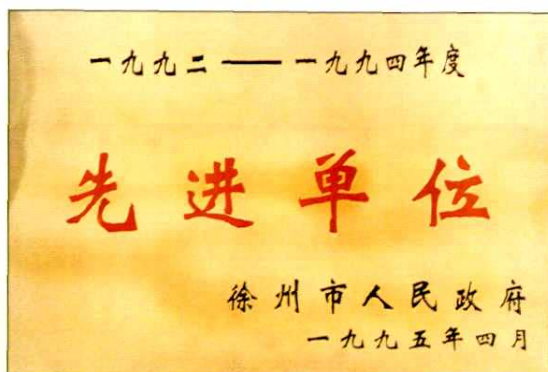 一九九二——一九九四年度
先进单位
徐州市人民政府
一九九五年四月